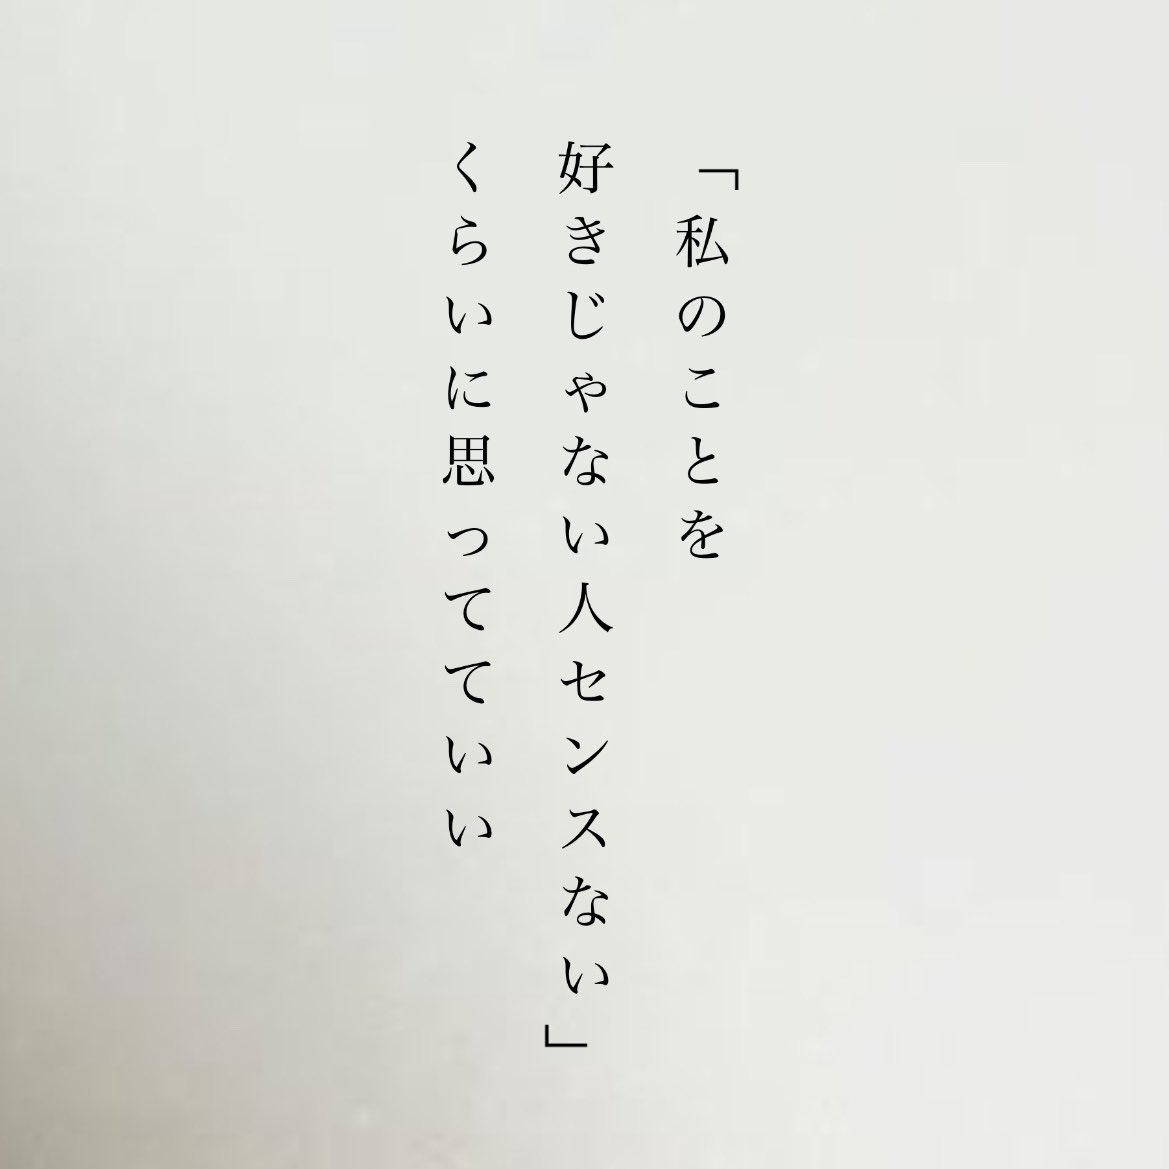 「私のことを
好きじゃない人センスない」
くらいに思ってていい